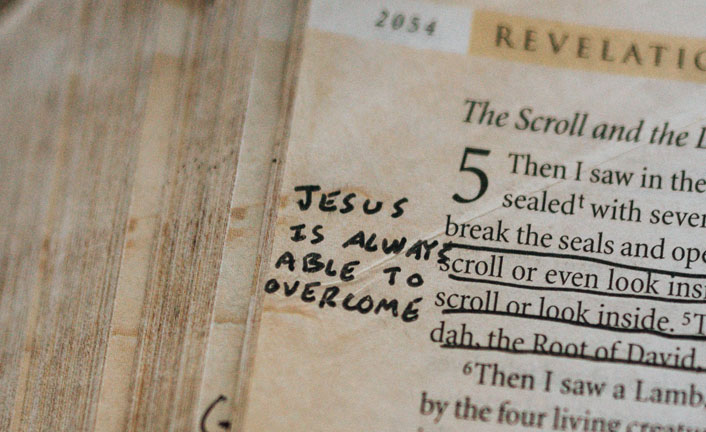 2054 REVELATIO
The Scroll and the L
5 Then I saw in the
sealedᵗ with seven
break the seals and ope
scroll or even look insi
scroll or look inside. ⁵T
dah, the Root of David,
⁶Then I saw a Lamb,
by the four living creatu
JESUS
IS ALWAYS
ABLE TO
OVERCOME
G